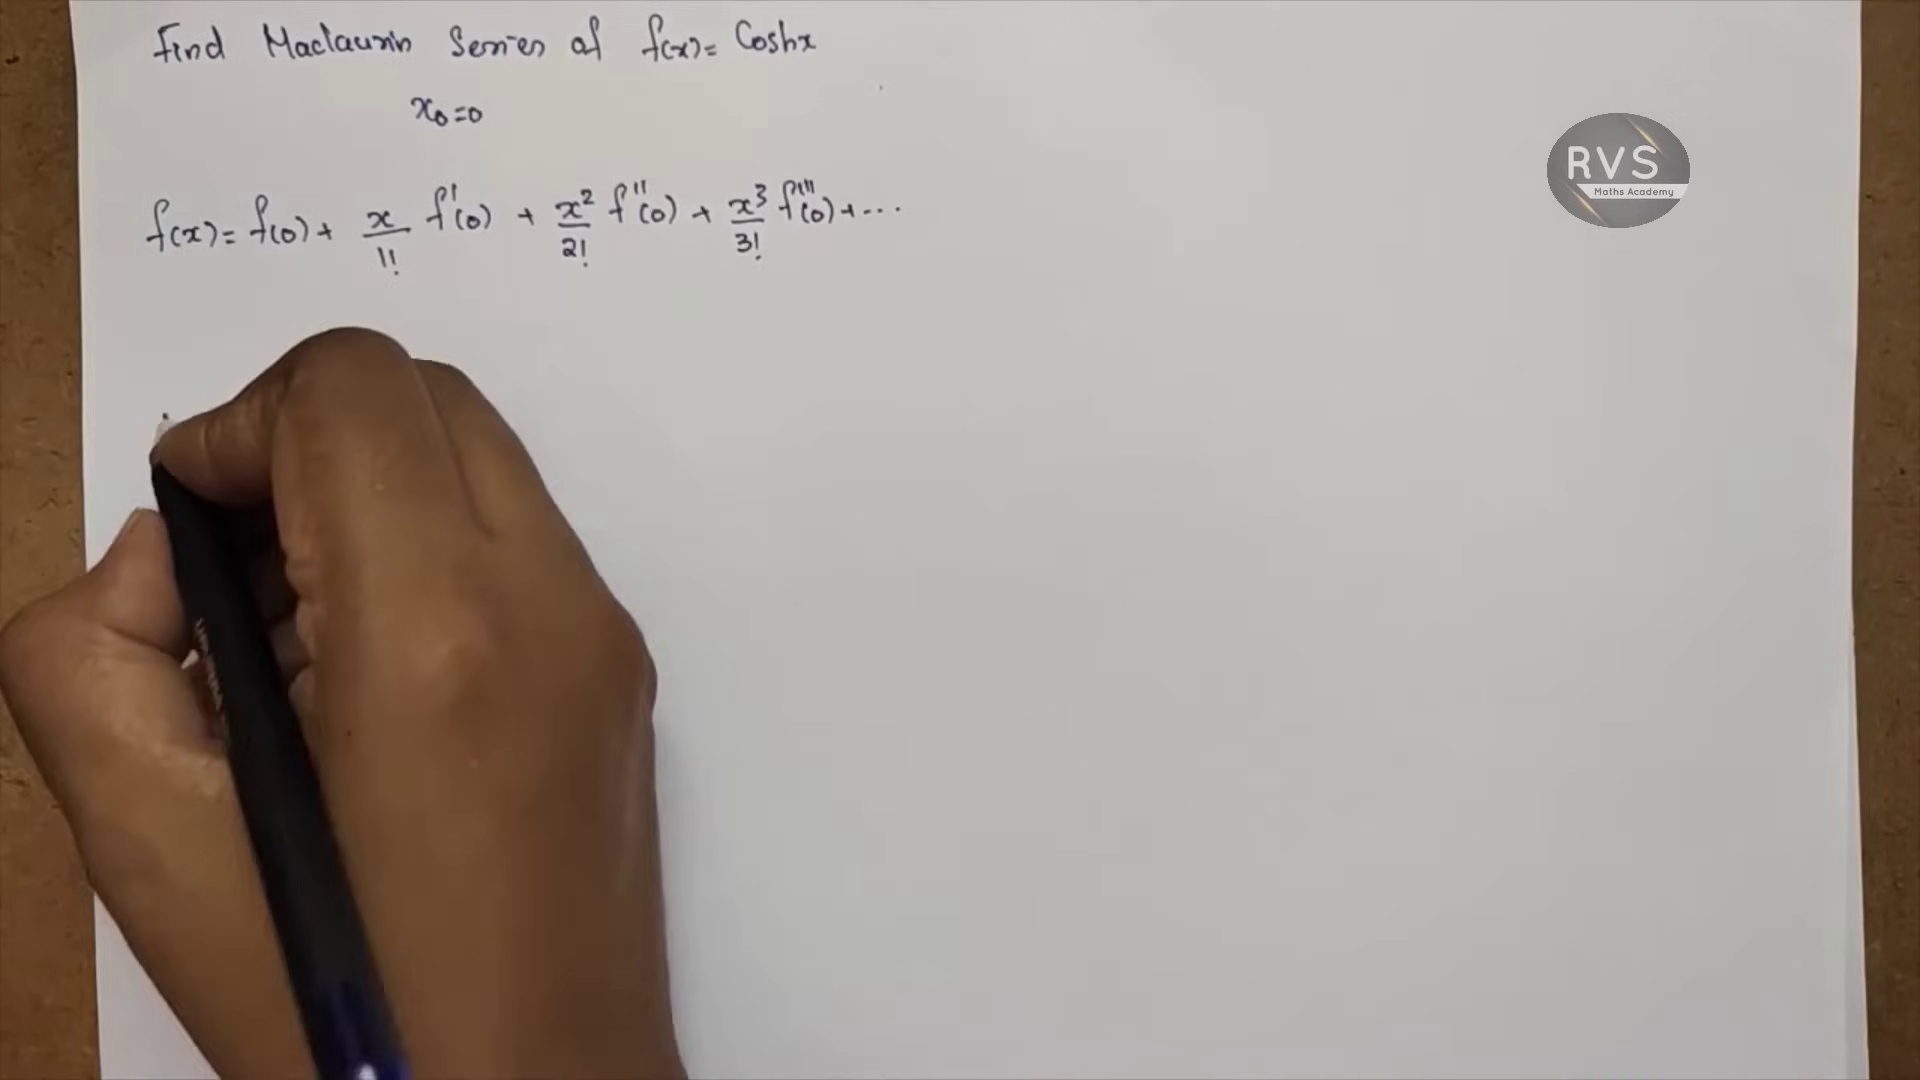 Find Maclaurin Series of f(x)= Coshx
x₀=0
f(x)= f(0)+ x/1! f'(0) + x²/2! f''(0) + x³/3! f'''(0)+...
RVS
Maths Academy